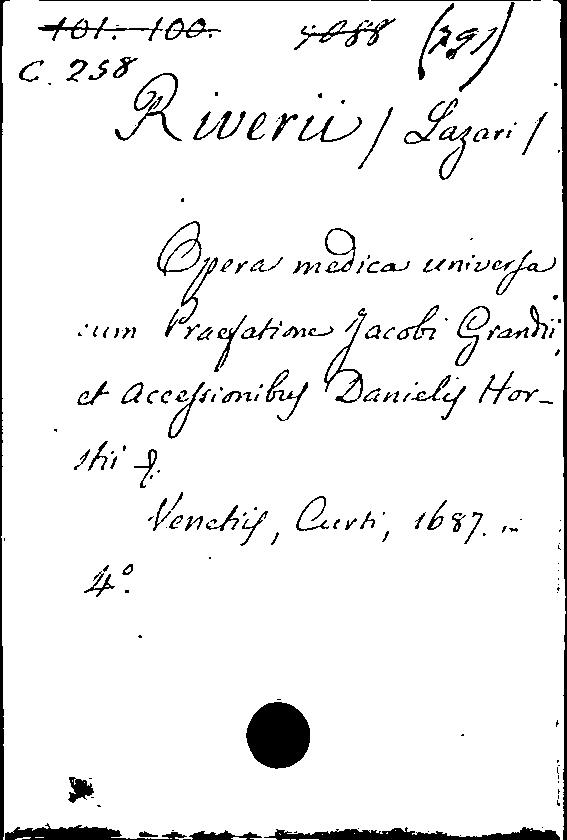 101. 100. 4088 (291)
C. 258
Riverii / Lazari /
Opera medica universa
cum Praefatione Jacobi Grandii,
et Accessionibus Danielis Hor-
stii &.
Venetiis, Curti, 1687. in
4°.